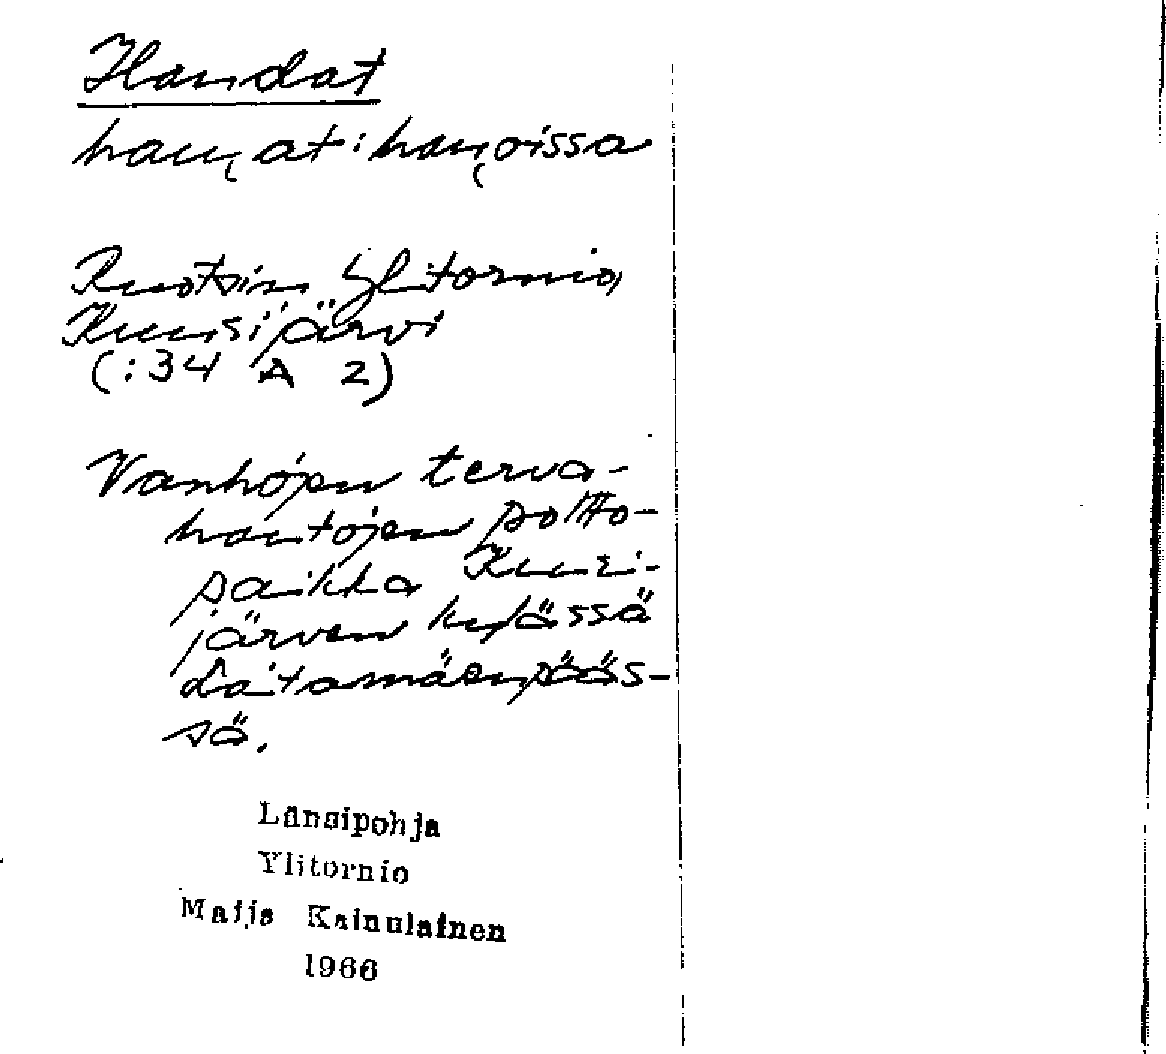 Haudat
hau̯at : hau̯oissa
Ruotsin Ylitornio,
Kuusijärvi
(:34 A 2)
Vanhojen terva-
hautojen poltto-
paikka Kuusi-
järven kylässä
Latamäenpääs-
sä.
Länsipohja
Ylitornio
Maija Kainulainen
1966